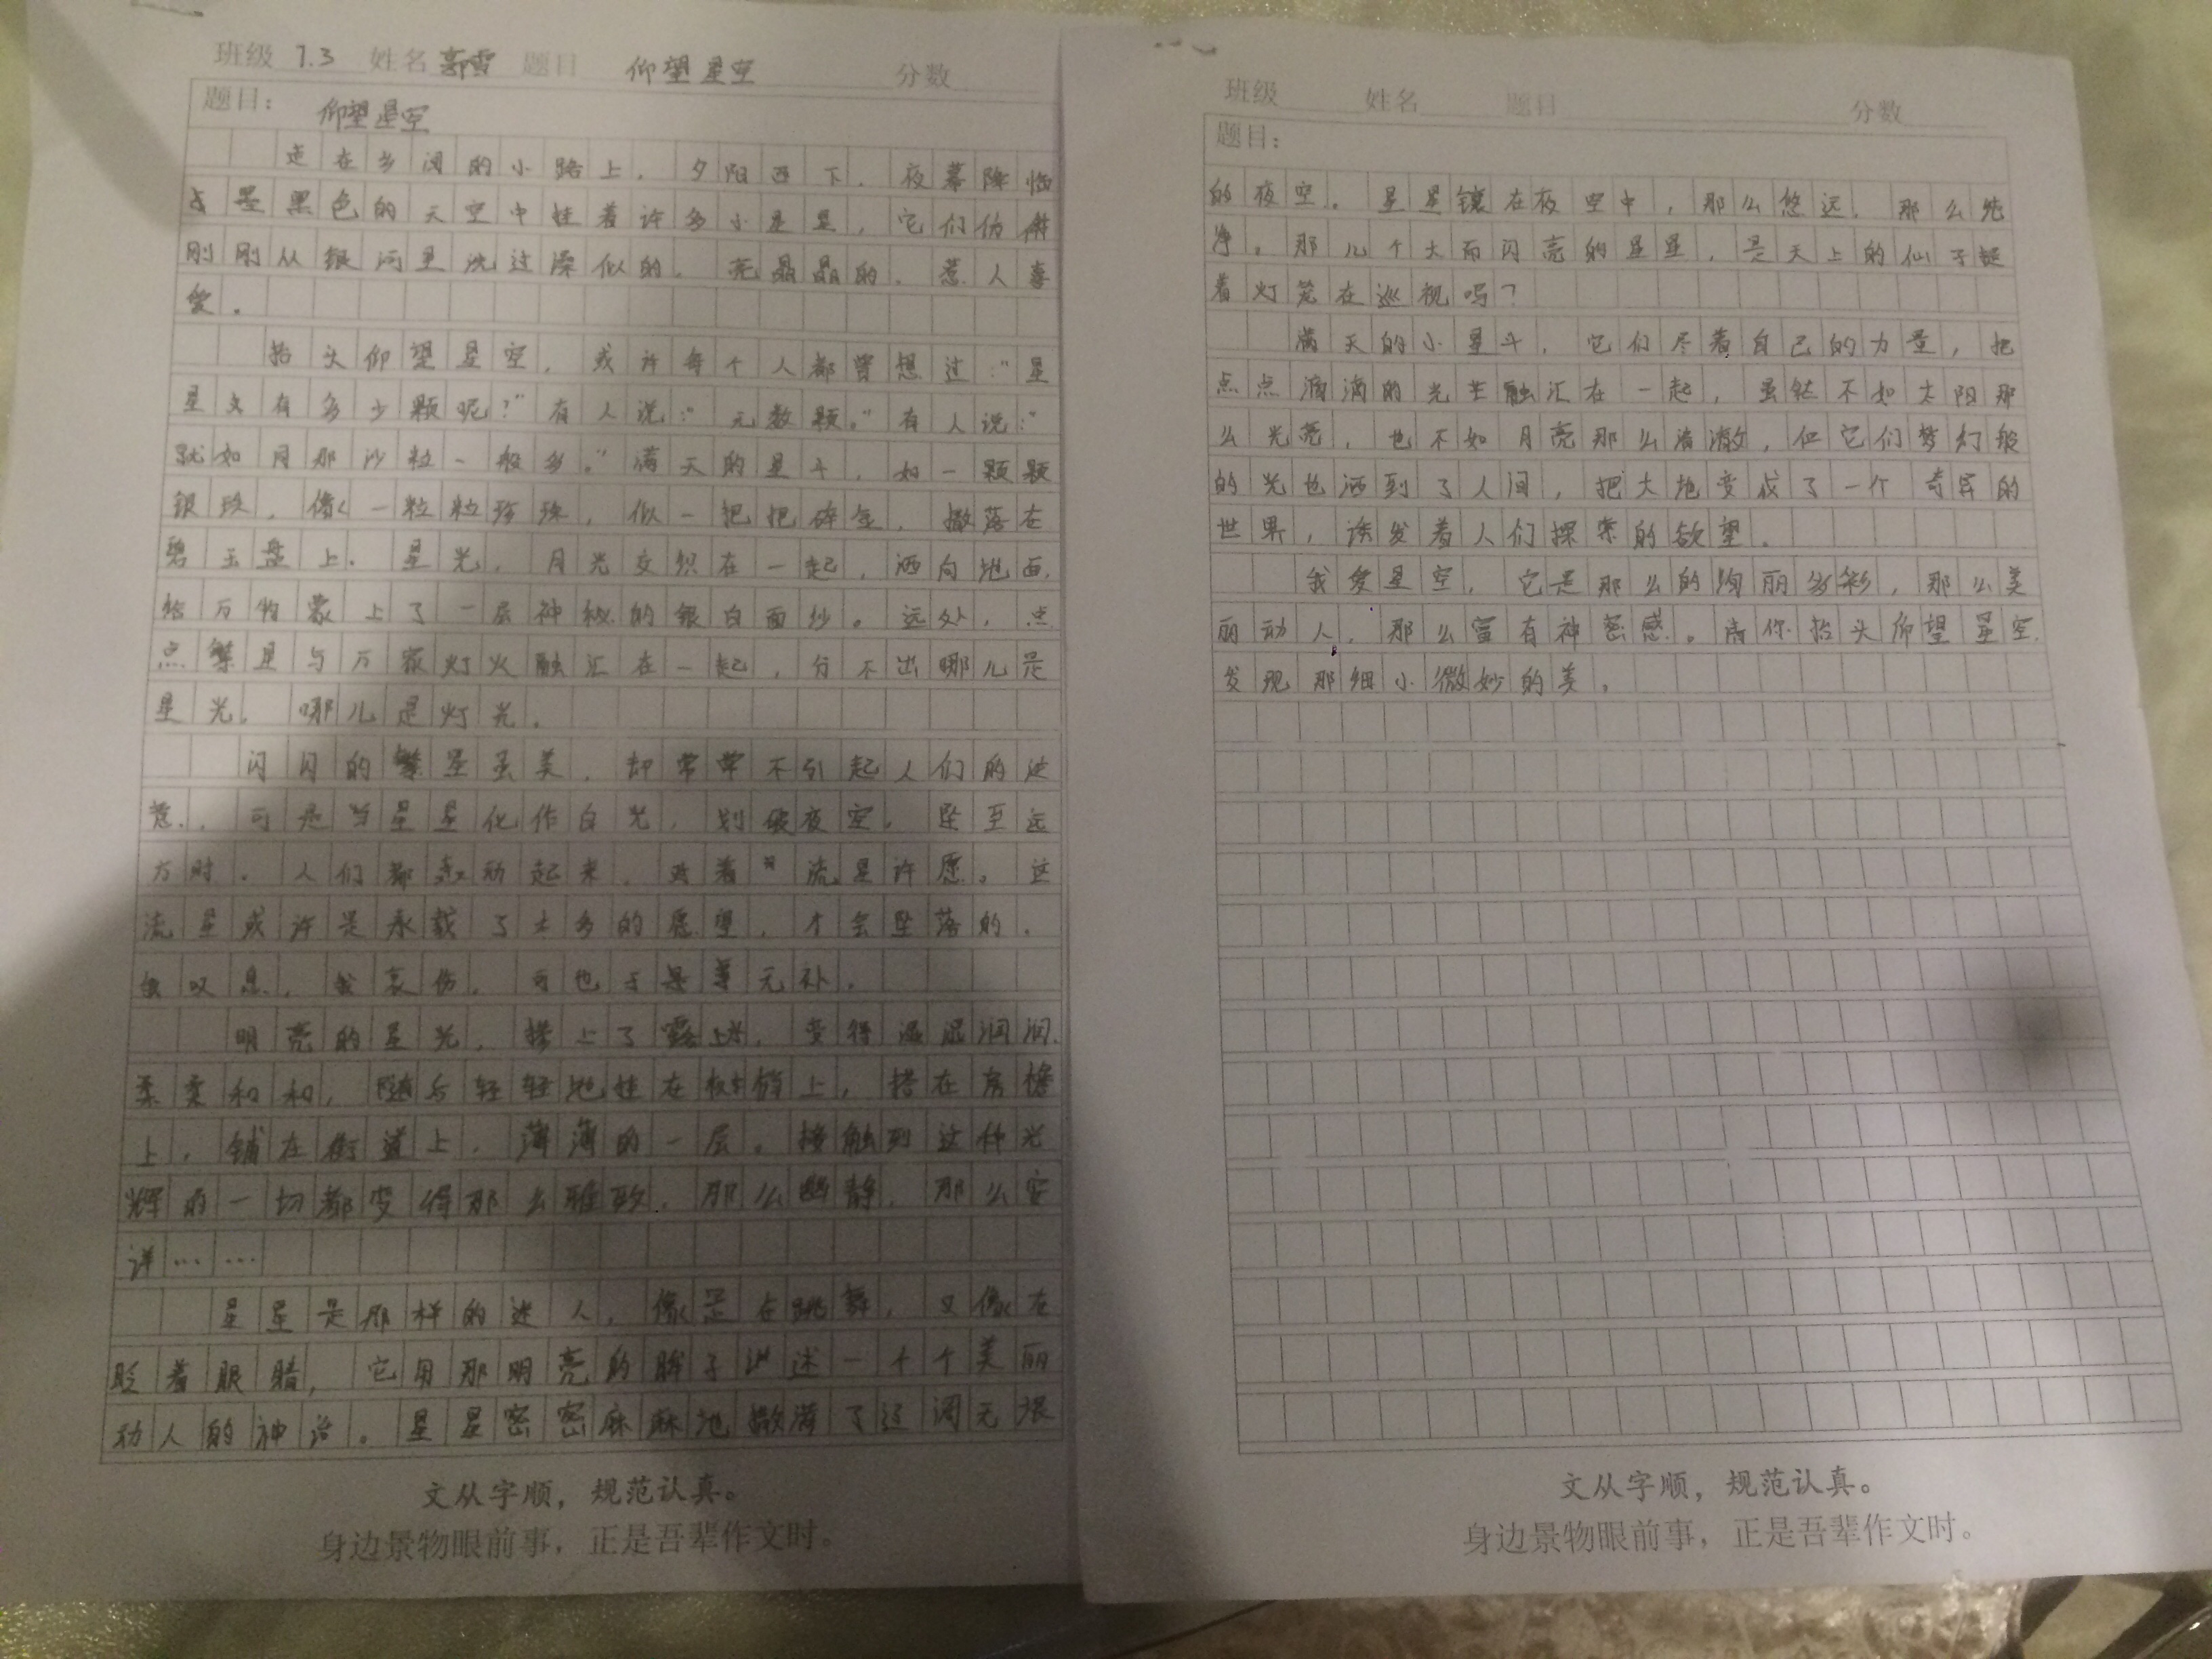 班级 7.3 姓名 郭雪 题目 仰望星空 分数
题目： 仰望星空
走在乡间的小路上，夕阳西下，夜幕降临
黑色的天空中挂着许多小星星，它们仿佛
刚刚从银河里洗过澡似的，亮晶晶的，惹人喜
爱。
抬头仰望星空，或许每个人都曾想过：“星
星文有多少颗呢？”有人说：“无数颗。”有人说：“
就如同那沙粒一般多。”满天的星斗，如一颗颗
银珠，像一粒粒珍珠，似一把把碎金，撒落在
碧玉盘上。星光，月光交织在一起，洒向地面，
给万物蒙上了一层神秘的银白面纱。远处，点
点繁星与万家灯火融汇在一起，分不出哪儿是
星光，哪儿是灯光。
闪闪的繁星虽美，却常常不引起人们的注
意，可是当星星化作白光，划破夜空，坠至远
方时，人们都轰动起来，对着流星许愿。这
流星或许是承载了太多的愿望，才会坠落的。
我叹息，我哀伤，可也于是事无补。
明亮的星光，搽上了露水，变得湿湿润润，
柔柔和和，随后轻轻地挂在树梢上，搭在房檐
上，铺在街道上，薄薄的一层。接触到这种光
辉的一切都变得那么雅致，那么幽静，那么安
详……
星星是那样的迷人，像是在跳舞，又像在
眨着眼睛，它用那明亮的眸子讲述一个个美丽
动人的神话。星星密密麻麻地撒满了辽阔无垠
文从字顺，规范认真。
身边景物眼前事，正是吾辈作文时。
班级 姓名 题目 分数
题目：
的夜空。星星镶在夜空中，那么悠远，那么纯
净。那几个大而闪亮的星星，是天上的仙子提
着灯笼在巡视吗？
满天的小星斗，它们尽着自己的力量，把
点点滴滴的光芒融汇在一起，虽然不如太阳那
么光亮，也不如月亮那么清澈，但它们梦幻般
的光也洒到了人间，把大地变成了一个奇异的
世界，诱发着人们探索的欲望。
我爱星空，它是那么的绚丽多彩，那么美
丽动人，那么富有神密感。请你抬头仰望星空，
发现那细小微妙的美。
文从字顺，规范认真。
身边景物眼前事，正是吾辈作文时。